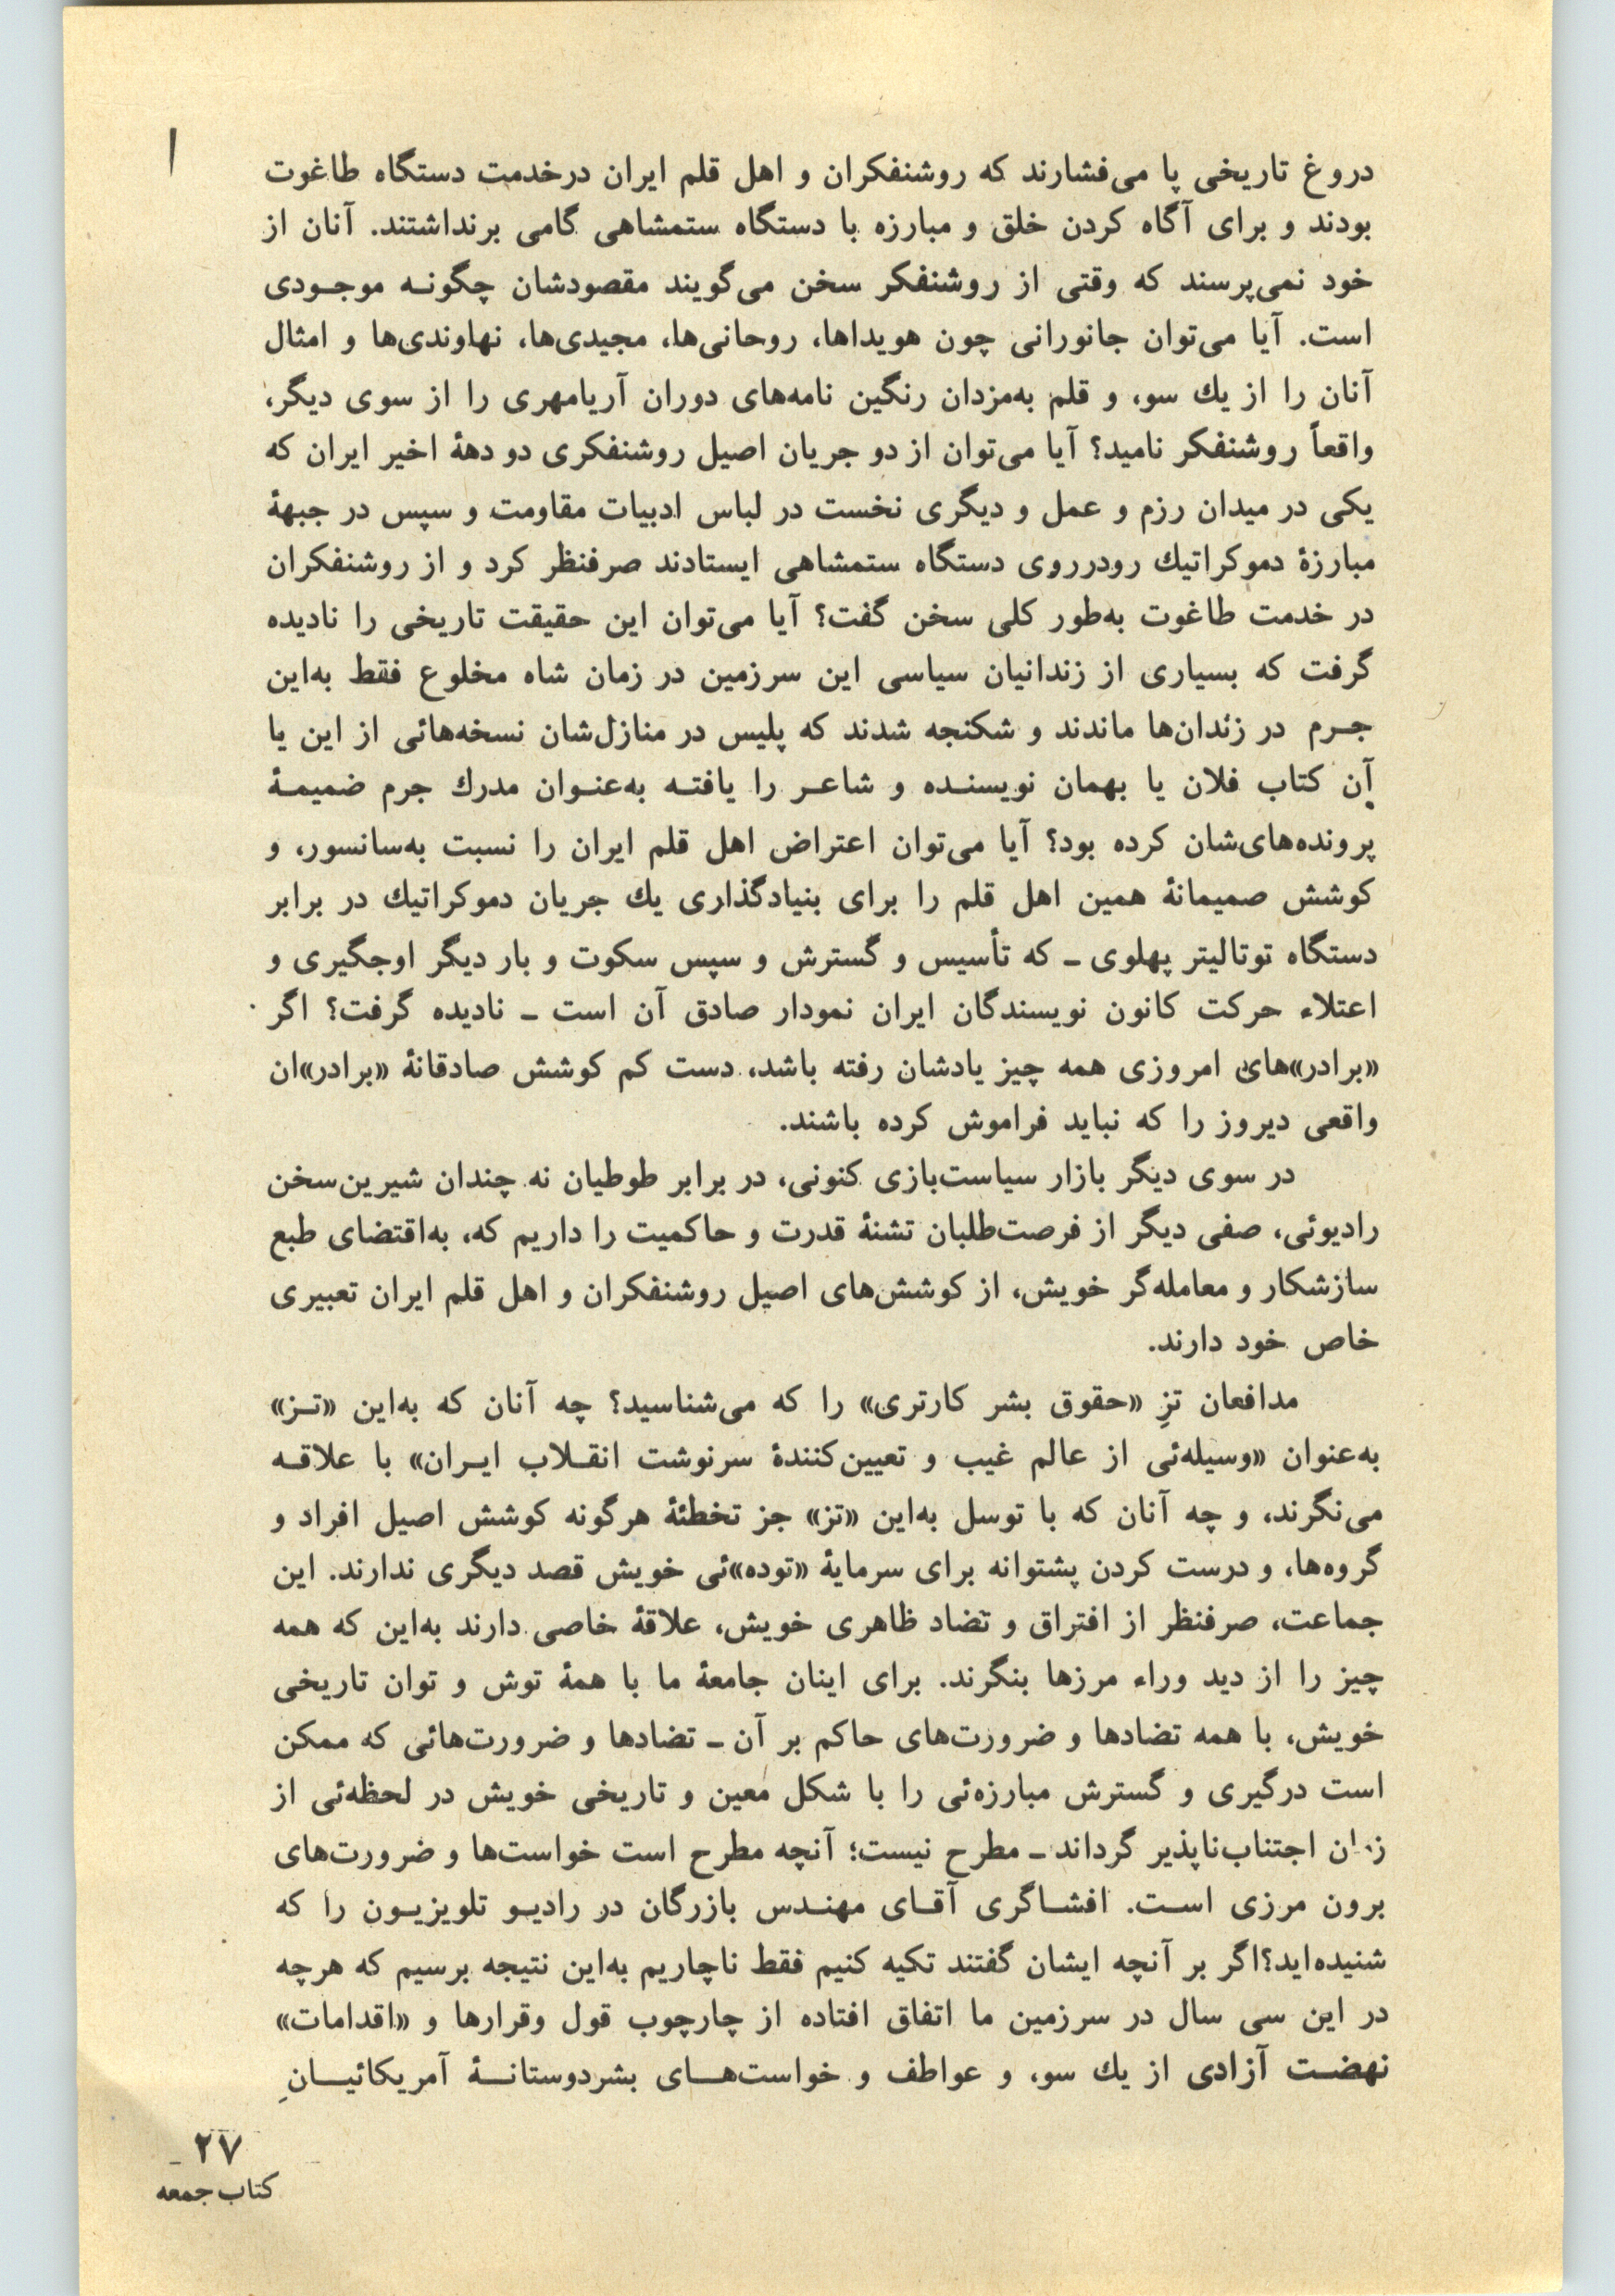 دروغ تاریخی پا می‌فشارند که روشنفکران و اهل قلم ایران درخدمت دستگاه طاغوت
بودند و برای آگاه کردن خلق و مبارزه با دستگاه ستمشاهی گامی برنداشتند. آنان از
خود نمی‌پرسند که وقتی از روشنفکر سخن می‌گویند مقصودشان چگونـه موجـودی
است. آیا می‌توان جانورانی چون هویداها، روحانی‌ها، مجیدی‌ها، نهاوندی‌ها و امثال
آنان را از یك سو، و قلم به‌مزدان رنگین نامه‌های دوران آریامهری را از سوی دیگر،
واقعاً روشنفکر نامید؟ آیا می‌توان از دو جریان اصیل روشنفکری دو دههٔ اخیر ایران که
یکی در میدان رزم و عمل و دیگری نخست در لباس ادبیات مقاومت و سپس در جبههٔ
مبارزهٔ دموکراتیك رودرروی دستگاه ستمشاهی ایستادند صرفنظر کرد و از روشنفکران
در خدمت طاغوت به‌طور کلی سخن گفت؟ آیا می‌توان این حقیقت تاریخی را نادیده
گرفت که بسیاری از زندانیان سیاسی این سرزمین در زمان شاه مخلوع فقط به‌این
جـرم در زندان‌ها ماندند و شکنجه شدند که پلیس در منازل‌شان نسخه‌هائی از این یا
آن کتاب فلان یا بهمان نویسنـده و شاعـر را یافتـه به‌عنـوان مدرك جرم ضمیمـهٔ
پرونده‌های‌شان کرده بود؟ آیا می‌توان اعتراض اهل قلم ایران را نسبت به‌سانسور، و
کوشش صمیمانهٔ همین اهل قلم را برای بنیادگذاری یك جریان دموکراتیك در برابر
دستگاه توتالیتر پهلوی ـ که تأسیس و گسترش و سپس سکوت و بار دیگر اوجگیری و
اعتلاء حرکت کانون نویسندگان ایران نمودار صادق آن است ـ نادیده گرفت؟ اگر
«برادر»های امروزی همه چیز یادشان رفته باشد، دست کم کوشش صادقانهٔ «برادر»ان
واقعی دیروز را که نباید فراموش کرده باشند.
در سوی دیگر بازار سیاست‌بازی کنونی، در برابر طوطیان نه چندان شیرین‌سخن
رادیوئی، صفی دیگر از فرصت‌طلبان تشنهٔ قدرت و حاکمیت را داریم که، به‌اقتضای طبع
سازشکار و معامله‌گر خویش، از کوشش‌های اصیل روشنفکران و اهل قلم ایران تعبیری
خاص خود دارند.
مدافعان تزِ «حقوق بشر کارتری» را که می‌شناسید؟ چه آنان که به‌این «تـز»
به‌عنوان «وسیله‌ئی از عالم غیب و تعیین‌کنندهٔ سرنوشت انقـلاب ایـران» با علاقـه
می‌نگرند، و چه آنان که با توسل به‌این «تز» جز تخطئهٔ هرگونه کوشش اصیل افراد و
گروه‌ها، و درست کردن پشتوانه برای سرمایهٔ «توده»ئی خویش قصد دیگری ندارند. این
جماعت، صرفنظر از افتراق و تضاد ظاهری خویش، علاقهٔ خاصی دارند به‌این که همه
چیز را از دید وراء مرزها بنگرند. برای اینان جامعهٔ ما با همهٔ توش و توان تاریخی
خویش، با همه تضادها و ضرورت‌های حاکم بر آن ـ تضادها و ضرورت‌هائی که ممکن
است درگیری و گسترش مبارزه‌ئی را با شکل معین و تاریخی خویش در لحظه‌ئی از
زمان اجتناب‌ناپذیر گرداند ـ مطرح نیست؛ آنچه مطرح است خواست‌ها و ضرورت‌های
برون مرزی اسـت. افشـاگری آقـای مهنـدس بازرگان در رادیـو تلویزیـون را که
شنیده‌اید؟ اگر بر آنچه ایشان گفتند تکیه کنیم فقط ناچاریم به‌این نتیجه برسیم که هرچه
در این سی سال در سرزمین ما اتفاق افتاده از چارچوب قول وقرارها و «اقدامات»
نهضـت آزادی از یك سو، و عواطف و خواست‌هـای بشردوستانـهٔ آمریکائیـانِ
۲۷
کتاب جمعه